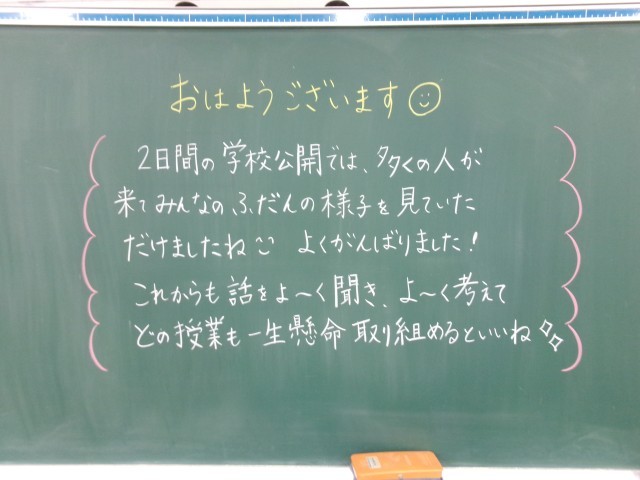 おはようございます☺
2日間の学校公開では、多くの人が
来てみんなのふだんの様子を見ていた
だけましたね よくがんばりました!
これからも話をよ〜く聞き、よ〜く考えて
どの授業も一生懸命取り組めるといいね